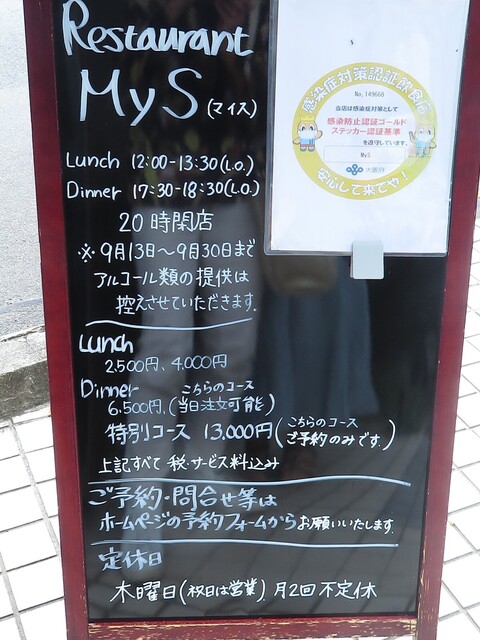 Restaurant
MyS(マイス)
Lunch 12:00-13:30(L.O.)
Dinner 17:30-18:30(L.O.)
20時閉店
※9月13日〜9月30日まで
アルコール類の提供は
控えさせていただきます。
Lunch
2,500円、4,000円
Dinner
6,500円、(こちらのコース当日注文可能)
特別コース 13,000円(こちらのコースご予約のみです。)
上記すべて 税・サービス料込み
ご予約・問合せ等は
ホームページの予約フォームからお願いいたします。
定休日
木曜日(祝日は営業) 月2回不定休
感染症対策認証飲食店
No.149668
当店は感染症対策として
感染防止認証ゴールド
ステッカー認証基準
を遵守しています。
MyS
大阪府
安心して来てや!